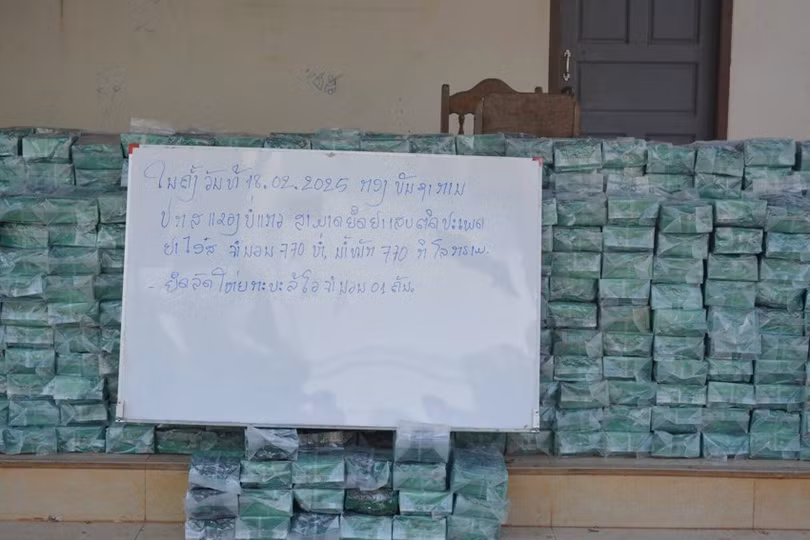 ໃນຄັ້ງວັນທີ 18.02.2025 ທາງ ບັນຊາການ
ປກສ ແຂວງ ບໍ່ແກ້ວ ສາມາດຍຶດຢາເສບຕິດປະເພດ
ຢາໄອສ໌ ຈຳນວນ 770 ຫໍ່, ນ້ຳໜັກ 770 ກິໂລກຣາມ.
- ຍຶດລົດໃຫຍ່ ກະບະ ອີໂຕ ຈຳນວນ 01 ຄັນ.